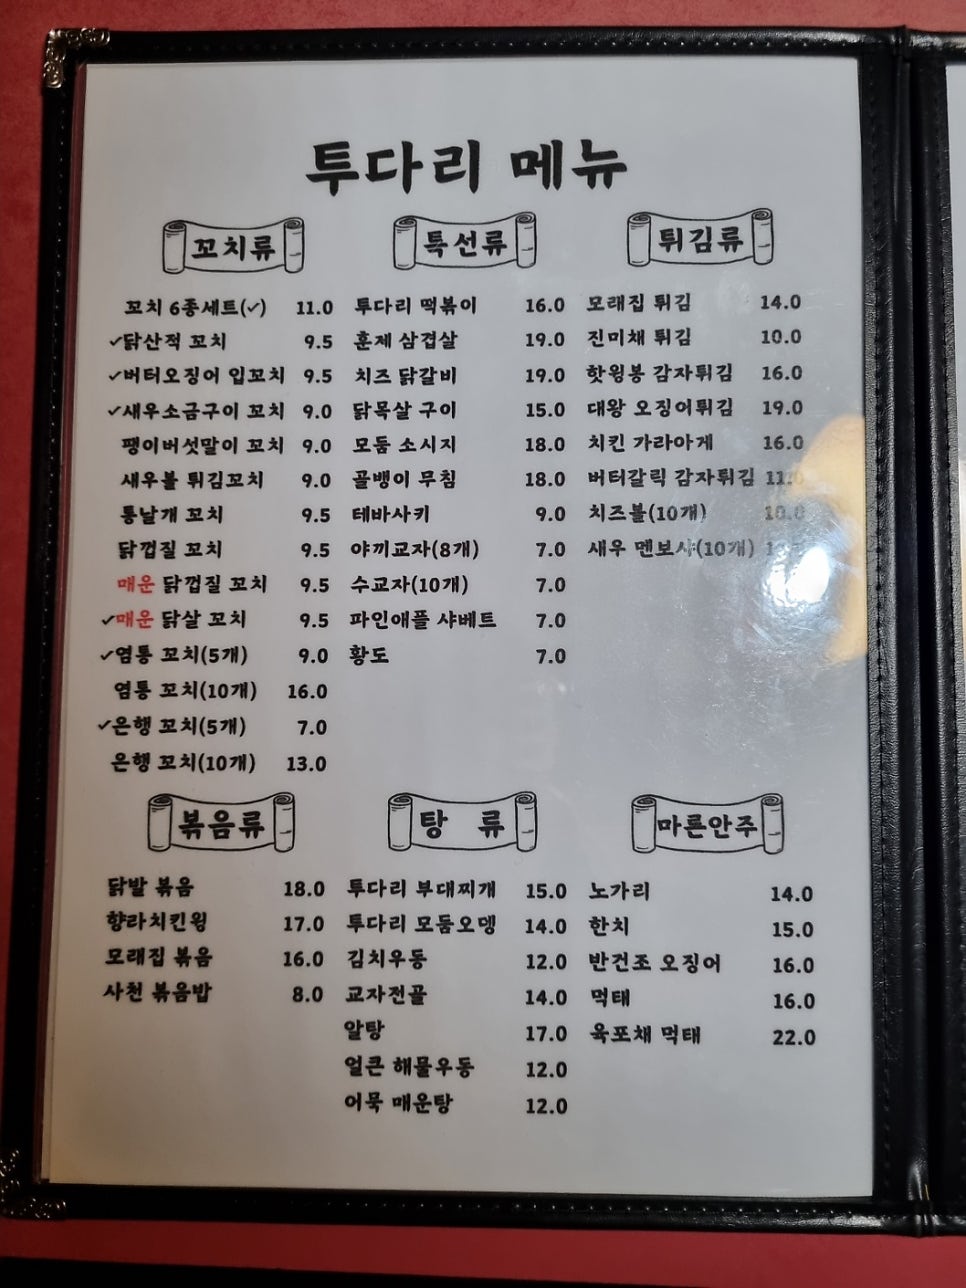 투다리 메뉴
꼬치류
꼬치 6종세트(✓) 11.0
✓닭산적 꼬치 9.5
✓버터오징어 입꼬치 9.5
✓새우소금구이 꼬치 9.0
팽이버섯말이 꼬치 9.0
새우볼 튀김꼬치 9.0
통날개 꼬치 9.5
닭껍질 꼬치 9.5
매운 닭껍질 꼬치 9.5
✓매운 닭살 꼬치 9.5
✓염통 꼬치(5개) 9.0
염통 꼬치(10개) 16.0
✓은행 꼬치(5개) 7.0
은행 꼬치(10개) 13.0
특선류
투다리 떡볶이 16.0
훈제 삼겹살 19.0
치즈 닭갈비 19.0
닭목살 구이 15.0
모둠 소시지 18.0
골뱅이 무침 18.0
테바사키 9.0
야끼교자(8개) 7.0
수교자(10개) 7.0
파인애플 샤베트 7.0
황도 7.0
튀김류
모래집 튀김 14.0
진미채 튀김 10.0
핫윙봉 감자튀김 16.0
대왕 오징어튀김 19.0
치킨 가라아게 16.0
버터갈릭 감자튀김 11.0
치즈볼(10개) 10.0
새우 멘보샤(10개)
볶음류
닭발 볶음 18.0
향라치킨윙 17.0
모래집 볶음 16.0
사천 볶음밥 8.0
탕 류
투다리 부대찌개 15.0
투다리 모둠오뎅 14.0
김치우동 12.0
교자전골 14.0
알탕 17.0
얼큰 해물우동 12.0
어묵 매운탕 12.0
마른안주
노가리 14.0
한치 15.0
반건조 오징어 16.0
먹태 16.0
육포채 먹태 22.0